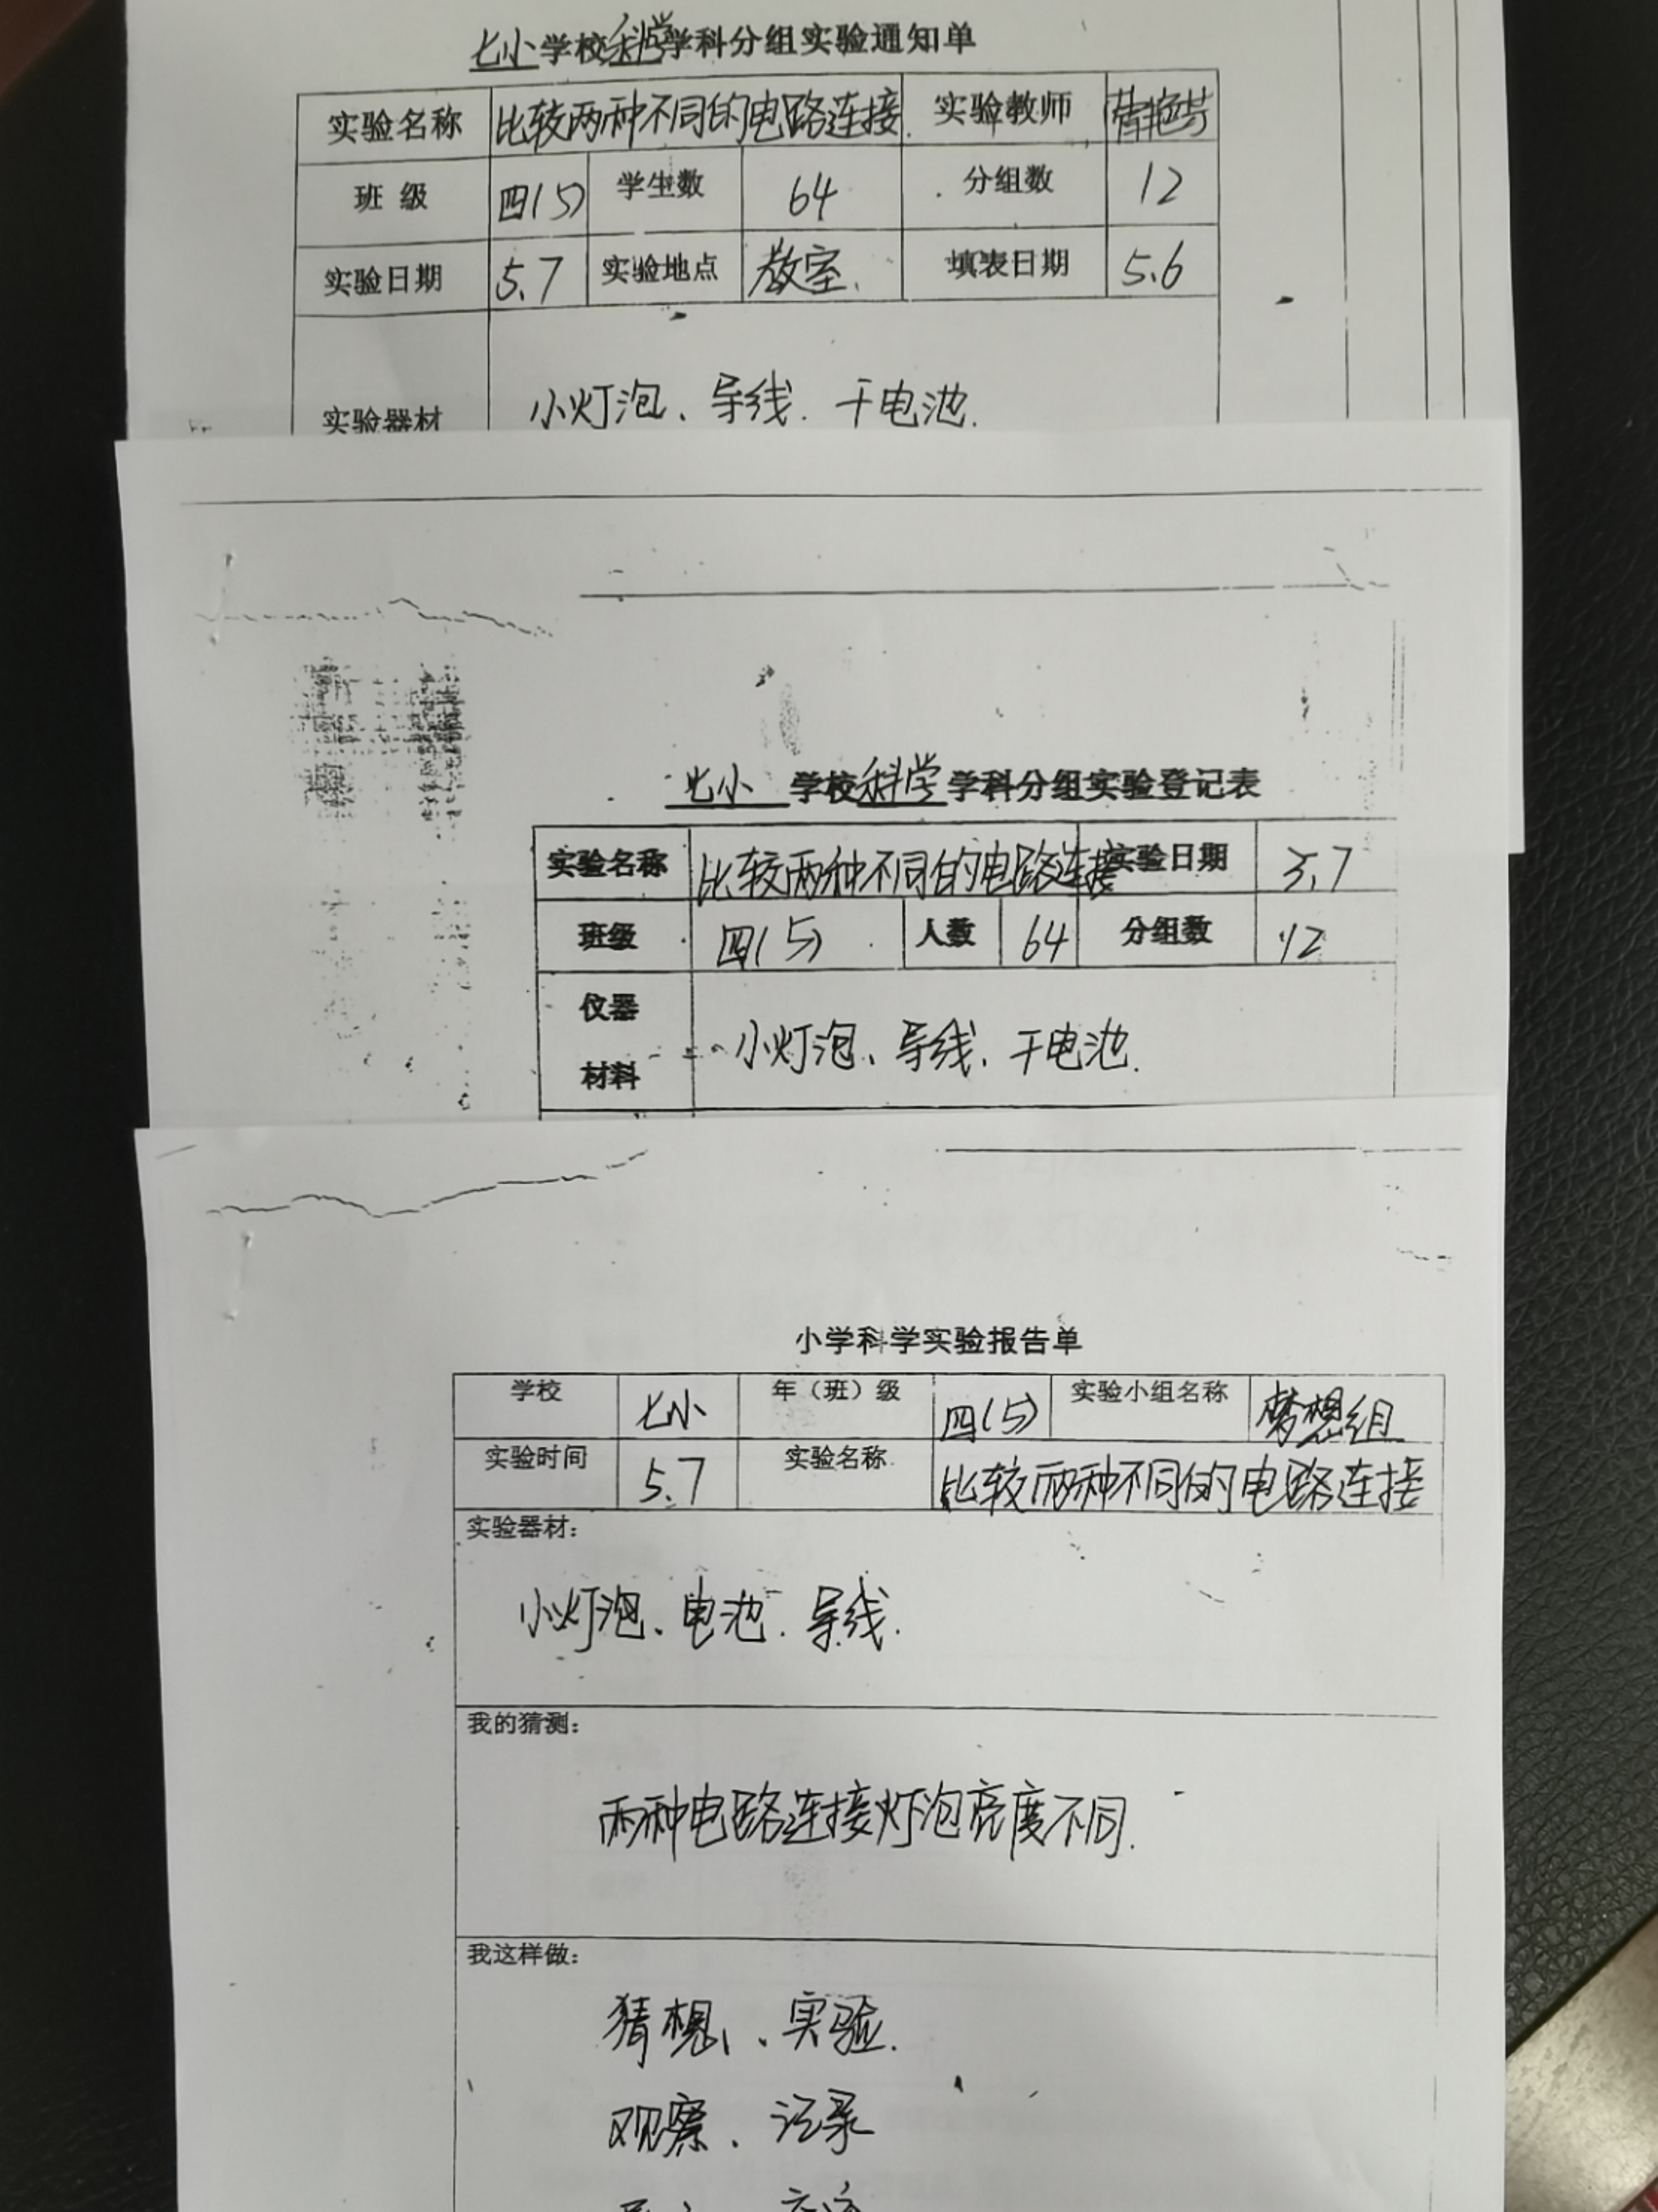 七小学校科学学科分组实验通知单
实验名称 比较两种不同的电路连接 实验教师
班 级 四(5) 学生数 64 分组数 12
实验日期 5.7 实验地点 教室 填表日期 5.6
实验器材 小灯泡、导线、干电池.
七小 学校科学学科分组实验登记表
实验名称 比较两种不同的电路连接 实验日期 5.7
班级 四(5) 人数 64 分组数 12
仪器
材料 小灯泡、导线、干电池.
小学科学实验报告单
学校 七小 年（班）级 四(5) 实验小组名称 梦想组
实验时间 5.7 实验名称 比较两种不同的电路连接
实验器材：
小灯泡、电池、导线.
我的猜测：
两种电路连接灯泡亮度不同.
我这样做：
猜想、实验.
观察、记录